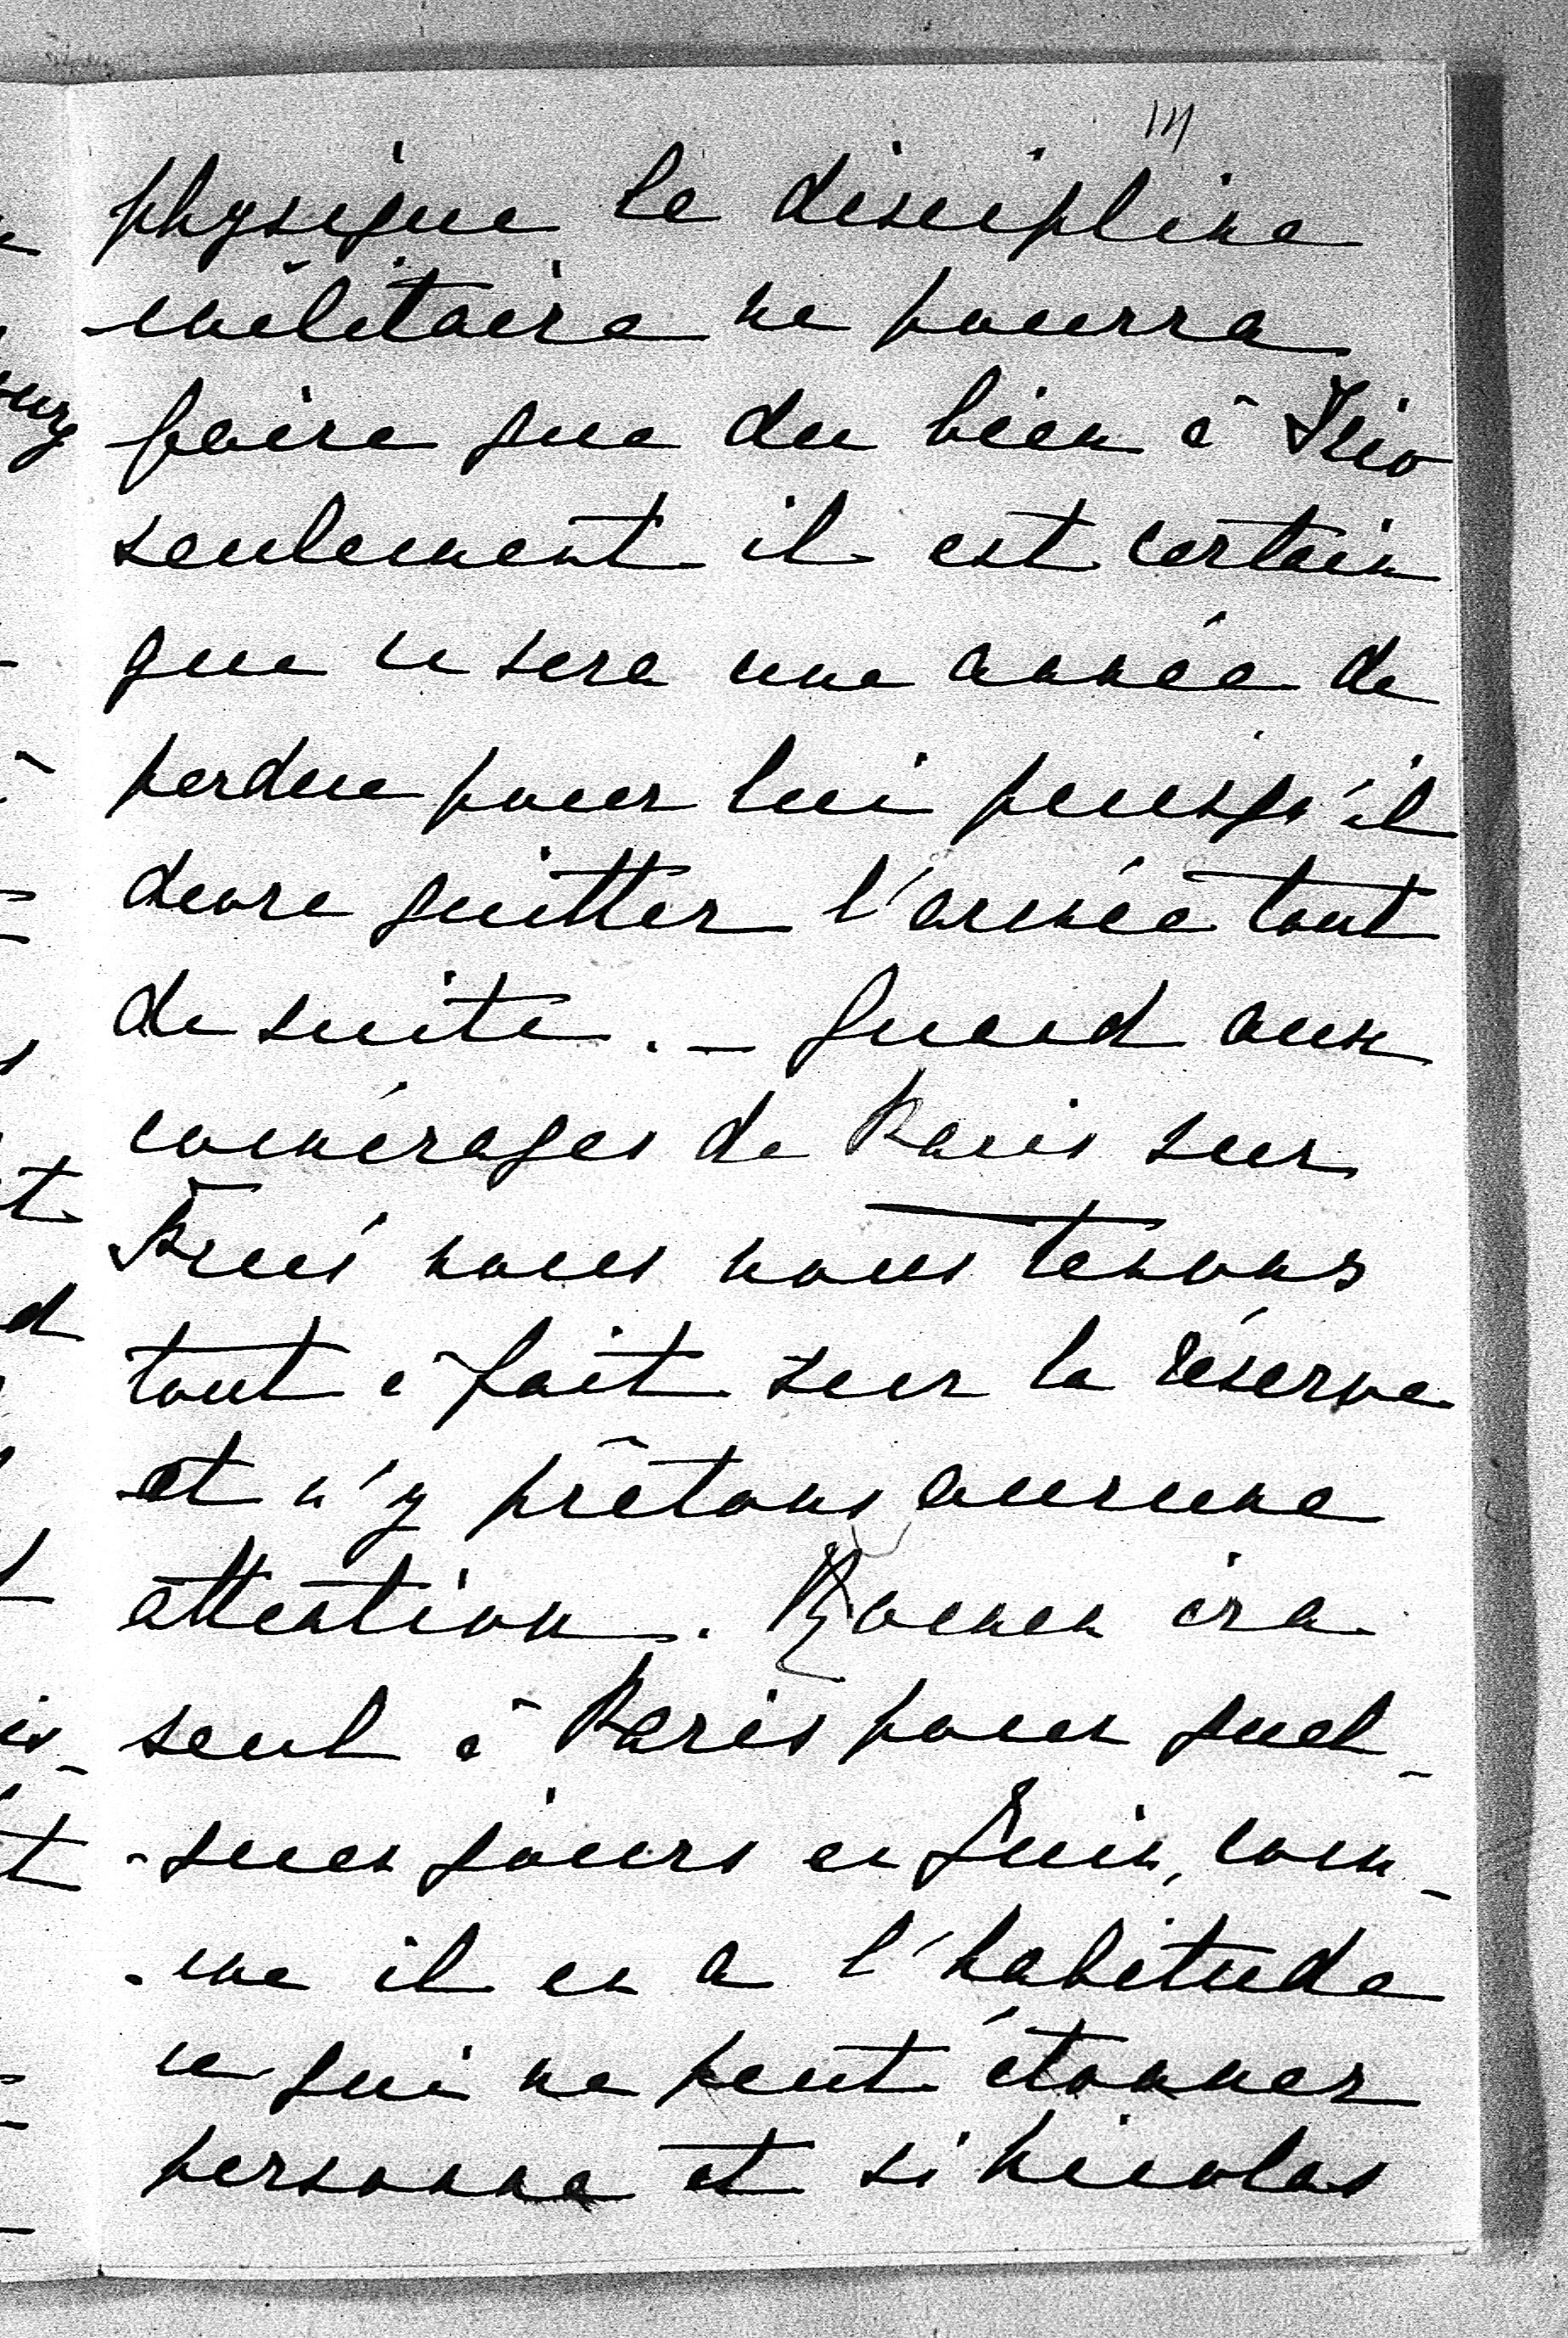 physique la discipline
militaire ne pourra
faire que du bien à
seulement il est certain
que ce sera une année de
perdue pour lui puisqu'il
devra quitter l'armée tout
de suite. — Quand aux
comérages de Paris sur
nous nous tenons
tout à fait sur la réserve
et n'y prêtons aucune
attention. ira
seul à Paris pour quel-
-ques jours en Juin, com-
-me il en a l'habitude
ce qui ne peut étonner
personne et si Nicolas